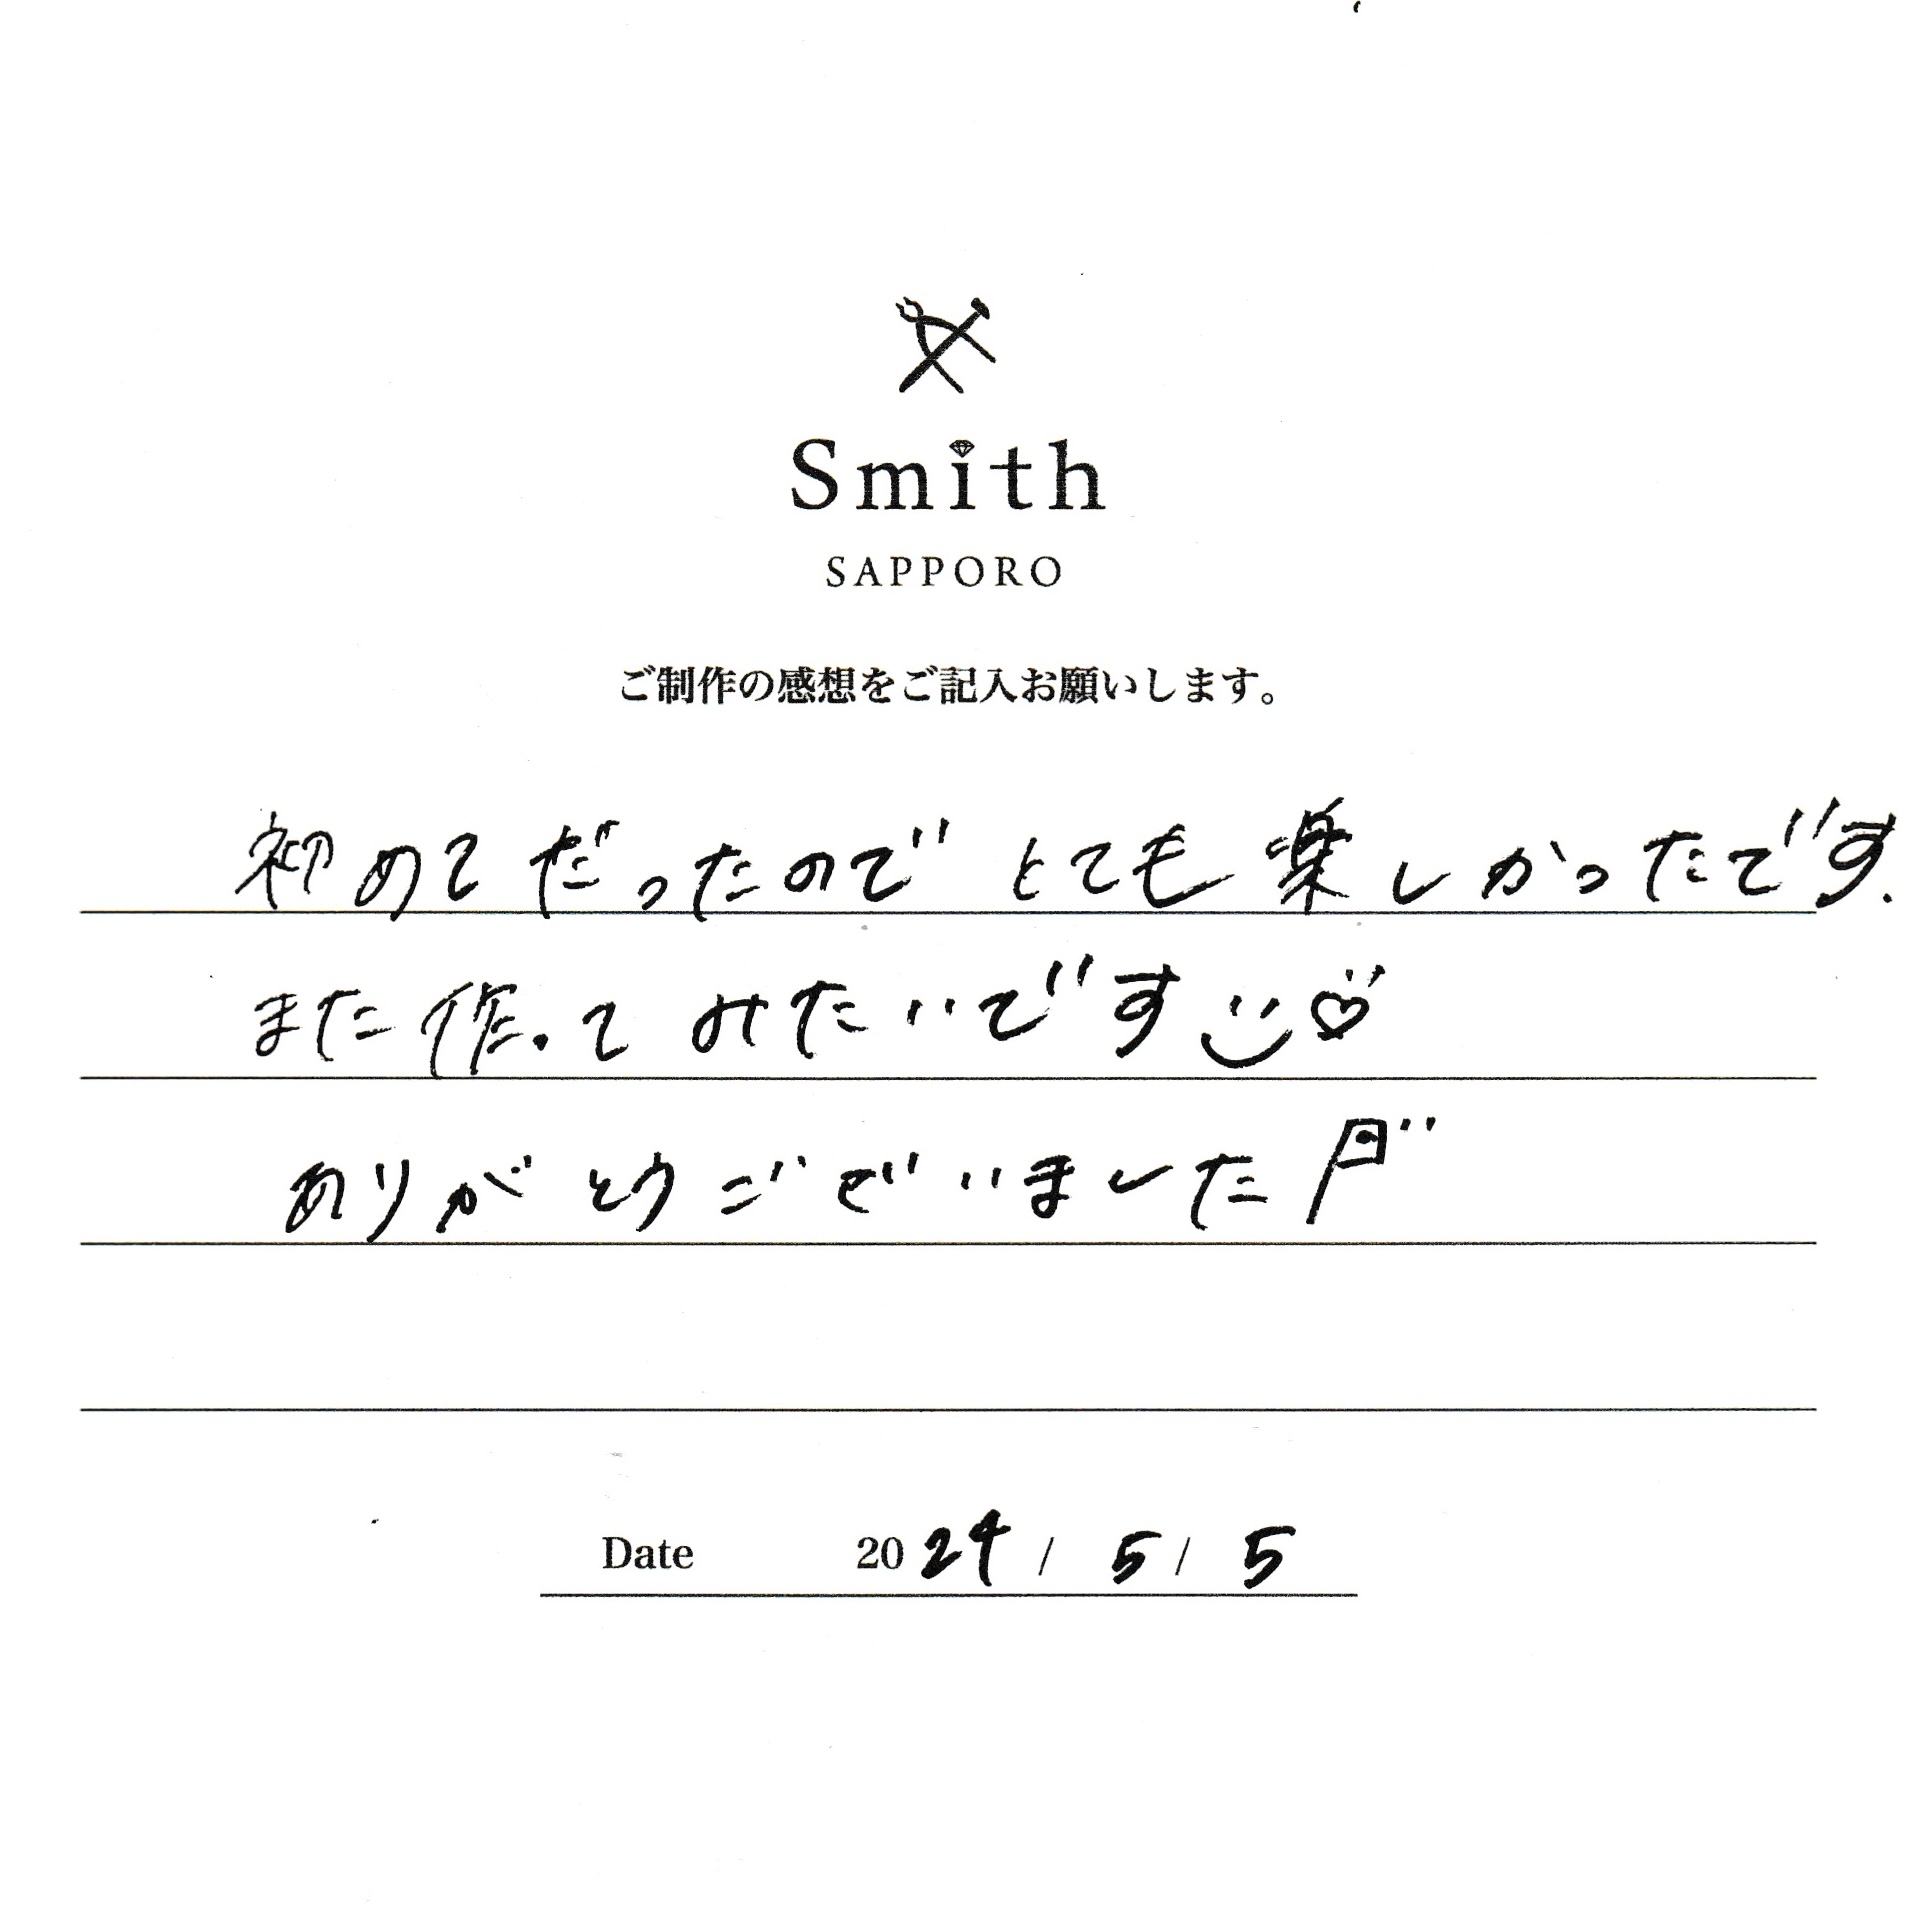 Smith
SAPPORO
ご制作の感想をご記入お願いします。
初めてだったのでとても楽しかったです.
また作ってみたいです
ありがとうございました
Date 2024 / 5 / 5